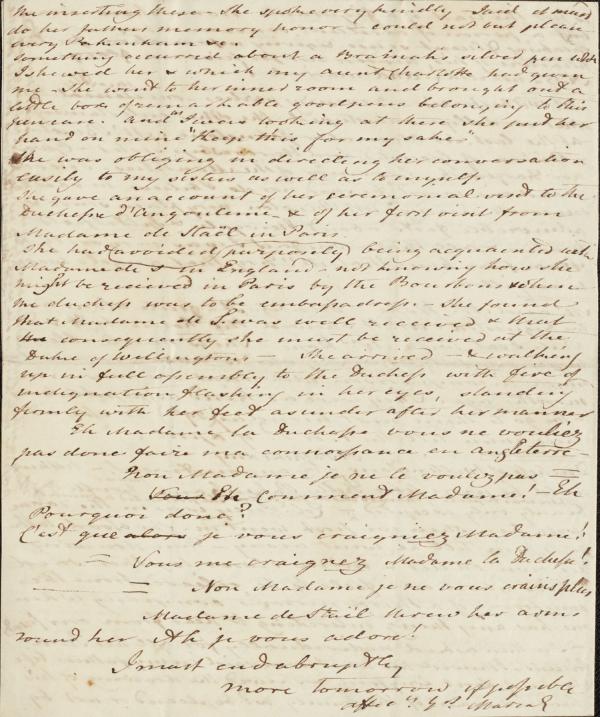 me inserting these - She spoke very kindly - Said it must
do her fathers memory honor - could not but please
every Pakenham &c -
Something occurred about a Bramah's silver pen which
I shewed her & which my aunt Charlotte had given
me - She went to her inner room and brought out a
little box of remarkable good pens belonging to this
pencase. And as I was looking at these she put her
hand on mine "Keep this for my sake"
She was obliging in directing her conversation
easily to my sisters as well as to myself.
She gave an account of her ceremonial visit to the
Duchesse d'Angouleme - & of her first visit from
Madame de Stael in Paris.
She had avoided purposely being acquainted with
Madame de S in England - not knowing how she
might be recieved in Paris by the Bourbons & when
the duchess was to be embassadress - She found
that Madame de S. was well received & that
consequently she must be received at the
Duke of Wellingtons - She arrived - & walking
up in full assembly to the Duchess with fire of
indignation flashing in her eyes, standing
firmly with her feet asunder after her manner
Eh Madame la Duchesse vous ne vouliez
pas donc faire ma connoissance en angleterre -
Non Madame je ne le voulez pas =
Vous Eh Comment Madame! - Eh
Pourquoi donc?
C'est que alors je vous craigniez Madame!
= Vous me craignez Madame la Duchesse!
= Non Madame je ne vous crains plus
Madame de Stael threw her arms
round her Ah je vous adore!
I must end abruptly
more tomorrow if possible
Maria E